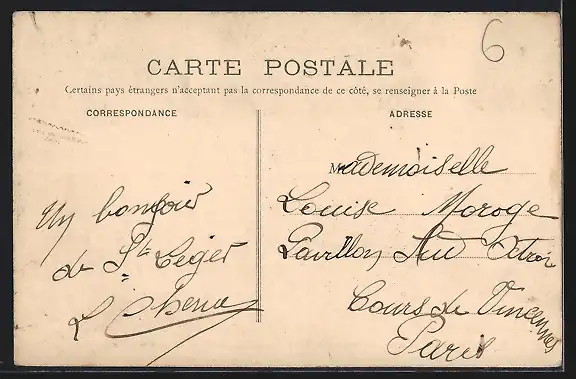 6
CARTE POSTALE
Certains pays étrangers n'acceptant pas la correspondance de ce côté, se renseigner à la Poste
CORRESPONDANCE
Un bonjour
de St Leger
L
ADRESSE
Mademoiselle
Louise Moroge
Pavillon Sud
Cours de Vincennes
Paris